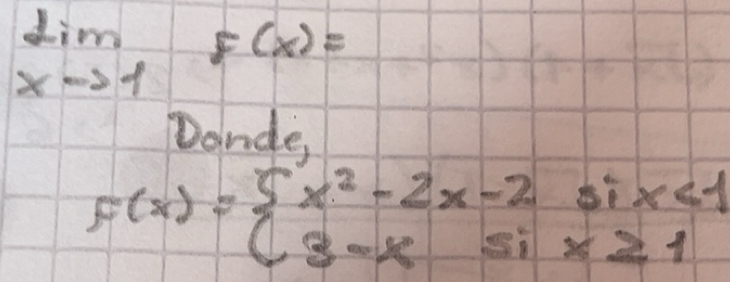 Lim F(x)=
x->1
Donde,
F(x) = { x² - 2x - 2 si x < 1
3 - x si x ≥ 1